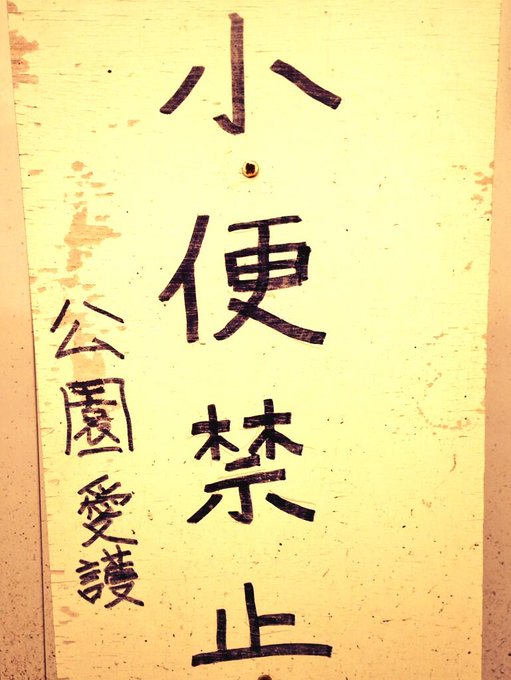 小便禁止
公園愛護